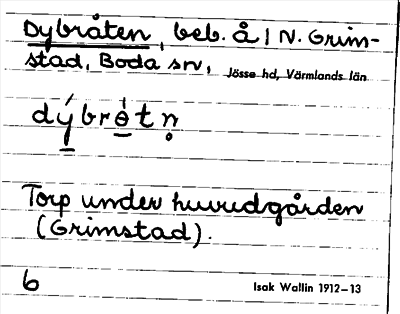 Dybråten, beb. å N. Grim-
stad, Boda sn, Jösse hd, Värmlands län
dýbrètn̥
Torp under huvudgården
(Grimstad).
6
Isak Wallin 1912–13